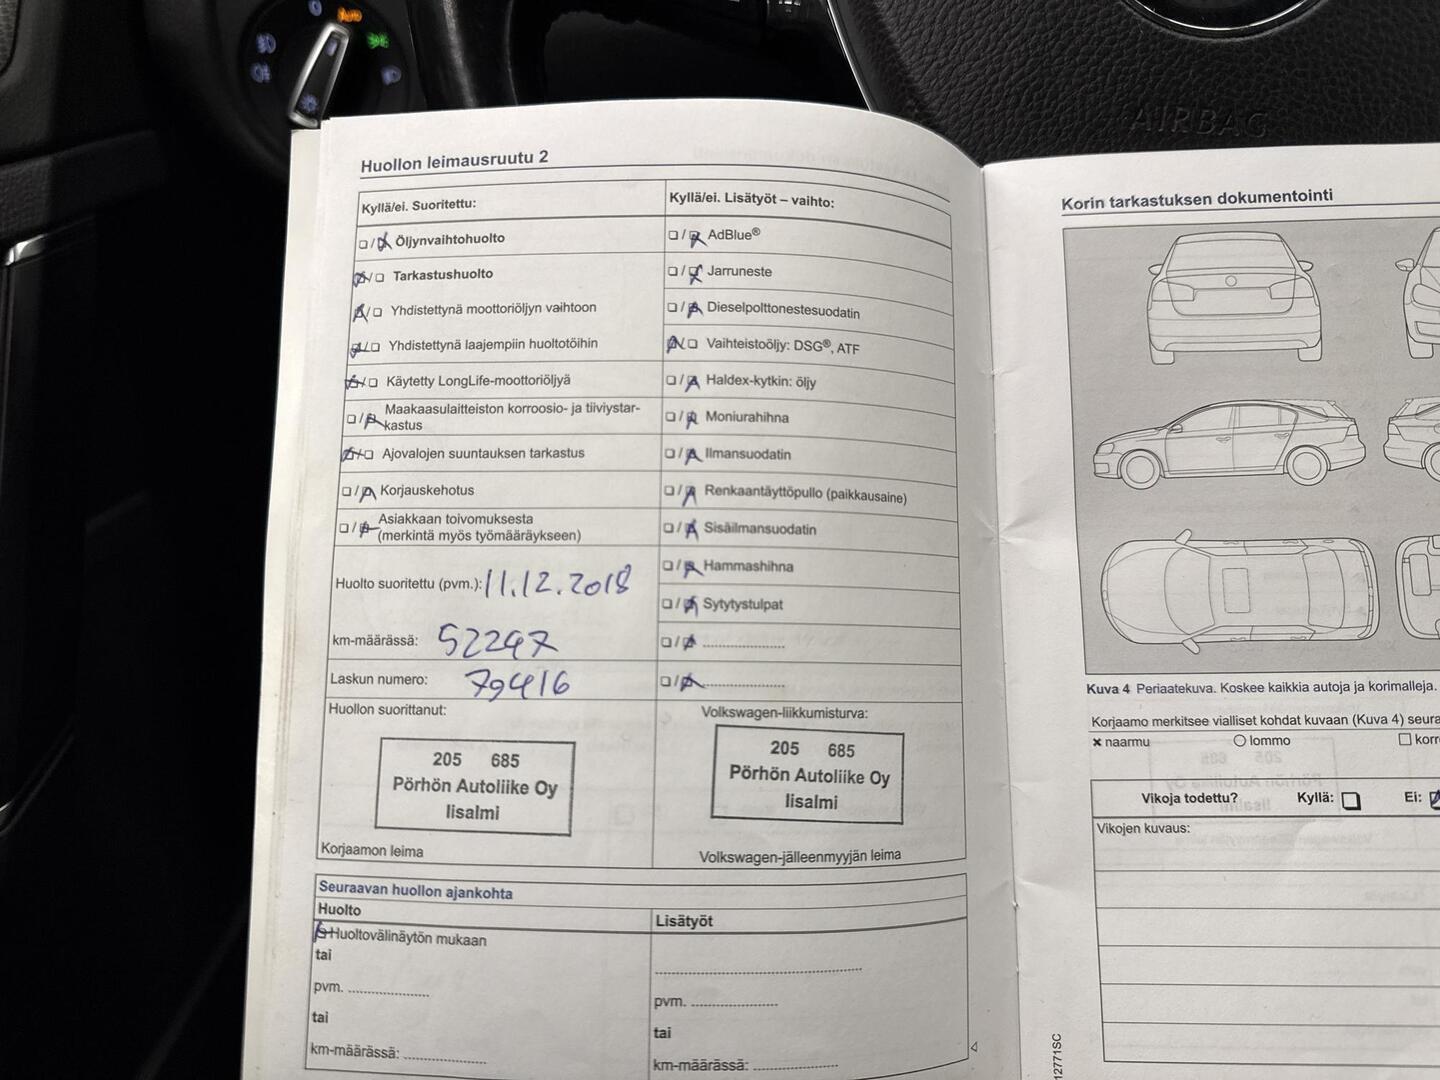 AUTO
AIRBAG
Huollon leimausruutu 2
Kyllä/ei. Suoritettu:
Öljynvaihtohuolto
Tarkastushuolto
Yhdistettynä moottoriöljyn vaihtoon
Yhdistettynä laajempiin huoltotöihin
Käytetty LongLife-moottoriöljyä
Maakaasulaitteiston korroosio- ja tiiviystar-
kastus
Ajovalojen suuntauksen tarkastus
Korjauskehotus
Asiakkaan toivomuksesta
(merkintä myös työmääräykseen)
Huolto suoritettu (pvm.): 11.12.2018
km-määrässä: 52247
Laskun numero: 79416
Huollon suorittanut:
205 685
Pörhön Autoliike Oy
Iisalmi
Korjaamon leima
Kyllä/ei. Lisätyöt – vaihto:
AdBlue®
Jarruneste
Dieselpolttonestesuodatin
Vaihteistoöljy: DSG®, ATF
Haldex-kytkin: öljy
Moniurahihna
Ilmansuodatin
Renkaantäyttöpullo (paikkausaine)
Sisäilmansuodatin
Hammashihna
Sytytystulpat
Volkswagen-liikkumisturva:
205 685
Pörhön Autoliike Oy
Iisalmi
Volkswagen-jälleenmyyjän leima
Seuraavan huollon ajankohta
Huolto
Huoltovälinäytön mukaan
tai
pvm.
tai
km-määrässä:
Lisätyöt
pvm.
tai
km-määrässä:
Korin tarkastuksen dokumentointi
Kuva 4 Periaatekuva. Koskee kaikkia autoja ja korimalleja.
Korjaamo merkitsee vialliset kohdat kuvaan (Kuva 4) seura
naarmu lommo korr
Vikoja todettu? Kyllä: Ei:
Vikojen kuvaus:
12771SC